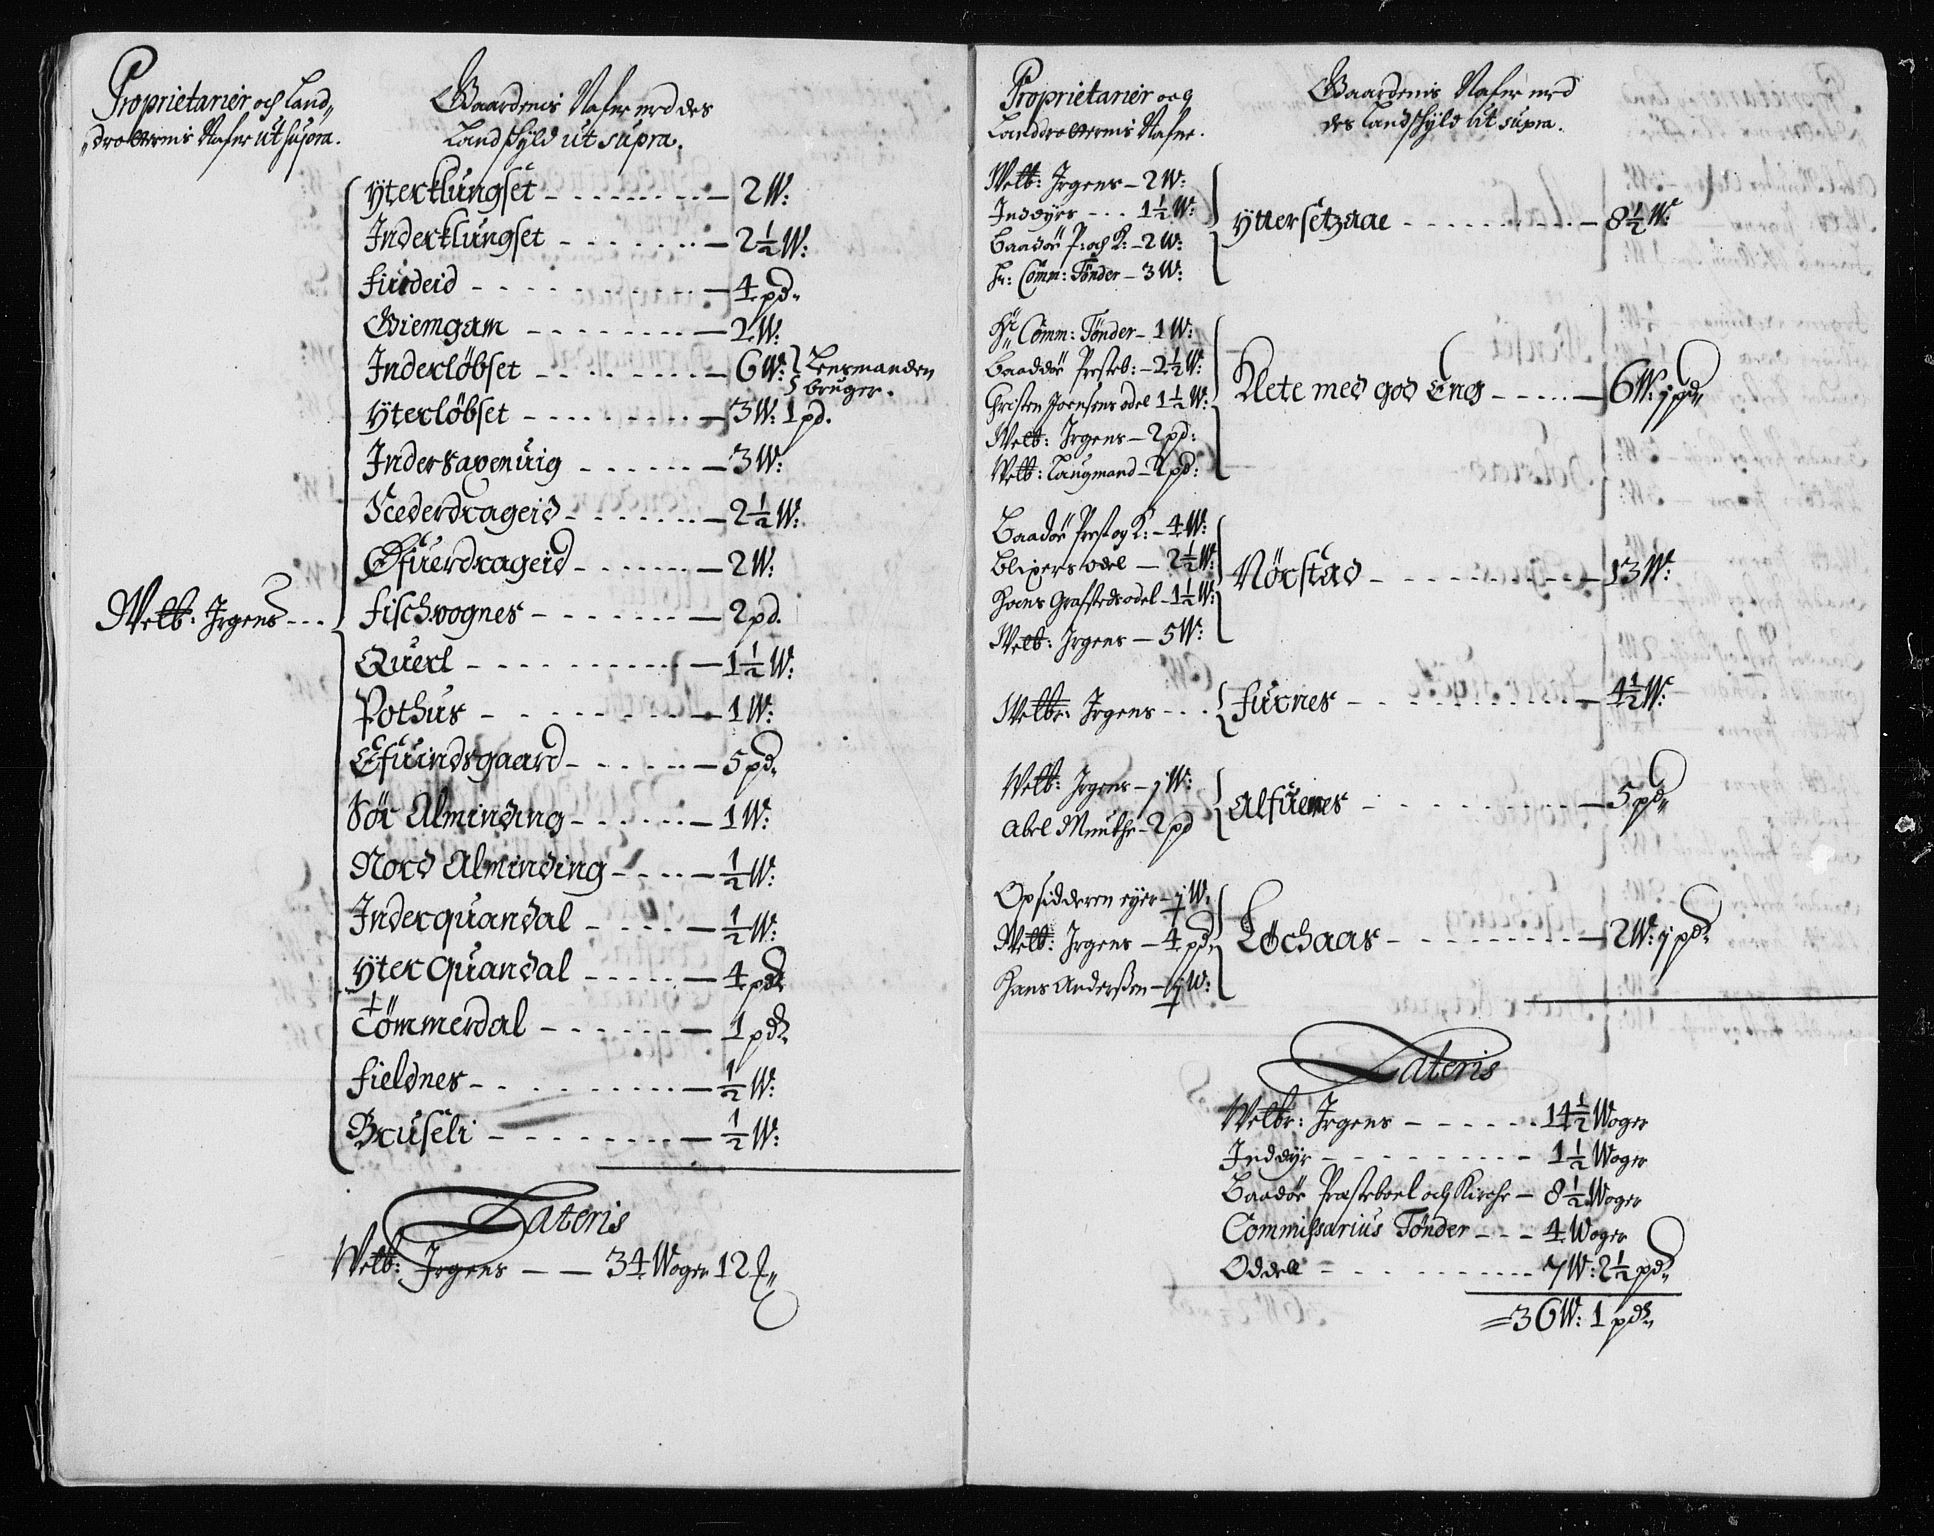 Proprietarier och Land„
„drotternis Nafne ut supra.
Gaardenis Nafne med des
Landschyld ut supra.
Welb: Jrgens
Yterklungset - 2 W:
Inderklungset - 2½ W:
Fiudeid - 4 pd.
Giemgam - 2 W:
Inderlöbset - 6 W: Lensmanden
bruger.
Yterlöbset - 3 W: 1 pd.
Indersaxenuig - 3 W:
Nederdrageid - 2½ W:
Ofuerdrageid - 2 W:
Fischvognes - 2 pd.
Querl - 1½ W:
Pothus - 1 W:
Efuindsgaard - 5 pd.
Sör Alminding - 1 W:
Nord Alminding - ½ W:
Inderquandal - ½ W:
Yterquandal - 4 pd
Tömmerdal - 1 pd
Fieldnes - ½ W:
Bruseli - ½ W:
Lateris
Welb: Jrgens - 34 Woger 12
Proprietarier og
Landdrotternis Nafne.
Gaardenis Nafne med
des Landschyld ut supra.
Welb: Jrgens - 2 W:
Inddyrs - 1½ W:
Baadöe P: och K: - 2 W:
Hr: Comm: Tönder - 3 W:
Yttersetzaae - 8½ W:
Hr Comm: Tönder - 1 W:
Baaddöe Presteb: - 2½ W:
Christen Joensens odel 1½ W:
Welb: Jrgens - 2 pd:
Welb: Laugmand - 2 pd:
Klete med god Eng - 6 W: j pd
Baadöe Prest og K: - 4 W:
Blixers odel - 2½ W:
Hans Grafsteds odel - 1½ W:
Welb: Jrgens - 5 W:
Nörstad - 13 W:
Welbr: Jrgens
Furnes - 4½ W:
Welb: Jrgens - j W:
Abel Munthe - 2 pd
Alfuenes - 5 pd
Opsidderen eyer - ½ W:
Welb: Jrgens - 4 pd
Hans Anderßen - ½ W:
Löchaas - 2 W: j pd
Lateris
Welbr: Jrgens - 14½ Woger
Inddyr - 1½ Woger
Baadöe Præsteboel och Kirche - 8½ Woger
Commissarius Tönder - 4 Woger
Oddell - 7 W: 2½ pd
= 36 W: 1 pd